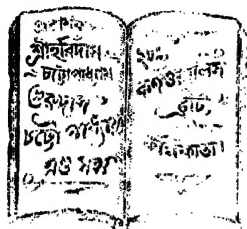 প্রকাশক
শ্রীহরিদাস
চট্টোপাধ্যায়
গুরুদাস
চট্টোপাধ্যায়
এণ্ড সন্স
২০১
কর্ণওয়ালিস
ষ্ট্রীট্
কলিকাতা।